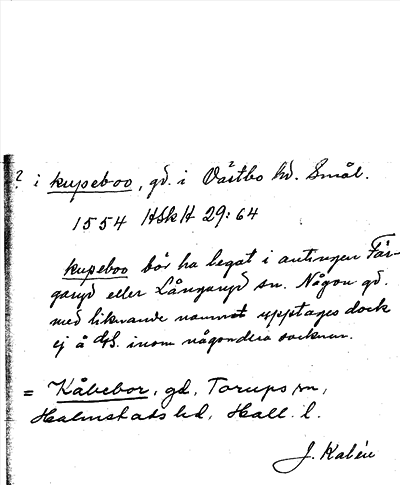 ? i kupeboo, gd. i Västbo hd. Smål.
1554 HSkH 29:64
kupeboo bör ha legat i antingen Fär-
garyd eller Långaryd sn. Någon gd.
med liknande namn upptages dock
ej å GS. inom någondera socknen.
= Kåbebor, gd, Torups sn,
Halmstads hd, Hall. l.
J. Kalén